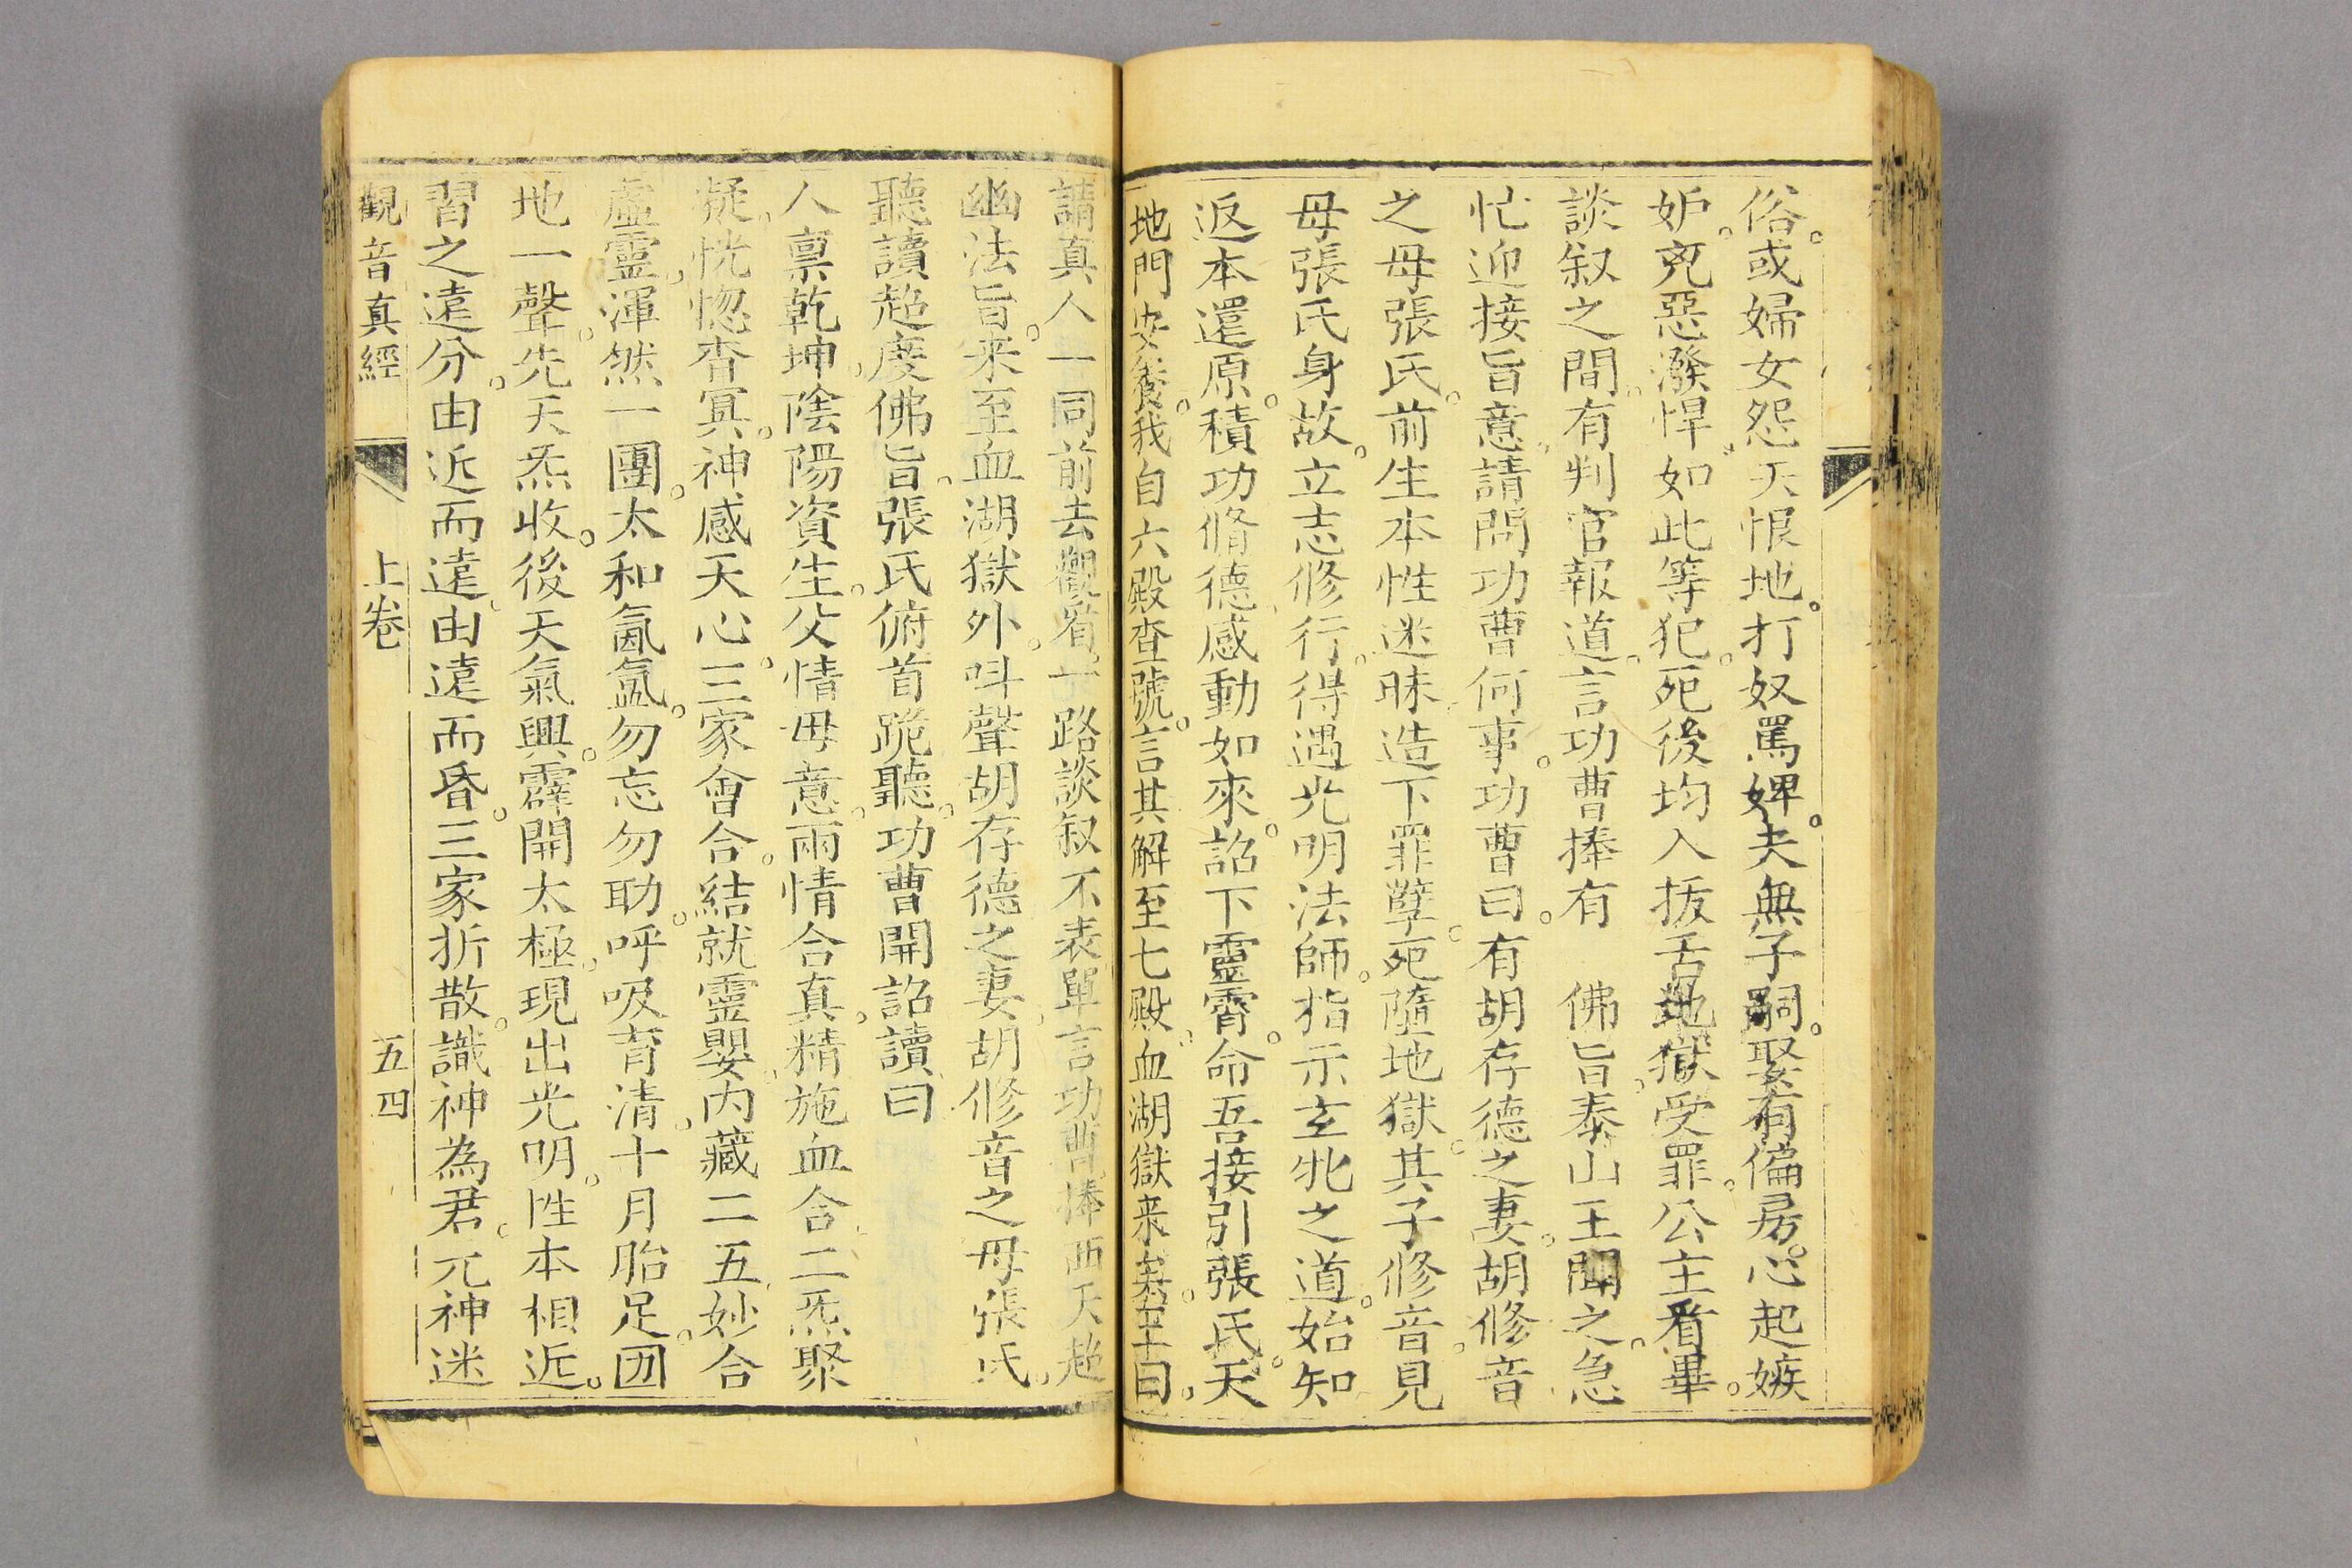 俗。或婦女怨天恨地。打奴罵婢。夫無子嗣。娶有偏房。心起嫉
妒。兇惡潑悍。如此等犯。死後均入拔舌地獄受罪。公主看畢。
談叙之間。有判官報道。言功曹捧有　佛旨。泰山王聞之。急
忙迎接旨意。請問功曹何事。功曹曰。有胡存德之妻。胡修音
之母張氏。前生本性迷昧。造下罪孽。死墮地獄。其子修音。見
母張氏身故。立志修行。得遇光明法師。指示玄牝之道。始知
返本還原。積功脩德。感動如來。詔下靈霄。命吾接引張氏。天
地門安養。我自六殿查號。言其解至七殿。血湖獄来。曰。
請真人一同前去觀看。一路談叙不表。單言功曹捧西天超
幽法旨。来至血湖獄外。呌聲胡存德之妻。胡修音之母張氏。
聽讀超度佛旨。張氏俯首跪聽。功曹開詔讀曰
人禀乾坤。陰陽資生。父情母意。兩情合真。精施血合。二炁聚
凝。恍惚杳冥。神感天心。三家會合。結就靈嬰。内藏二五。妙合
虛靈。渾然一團。太和氤氳。勿忘勿助。呼吸育清。十月胎足。囝
地一聲。先天炁收。後天氣興。霹開太極。現出光明。性本相近。
習之遠分。由近而遠。由遠而昏。三家折散。識神為君。元神迷
觀音真經　上卷　五四